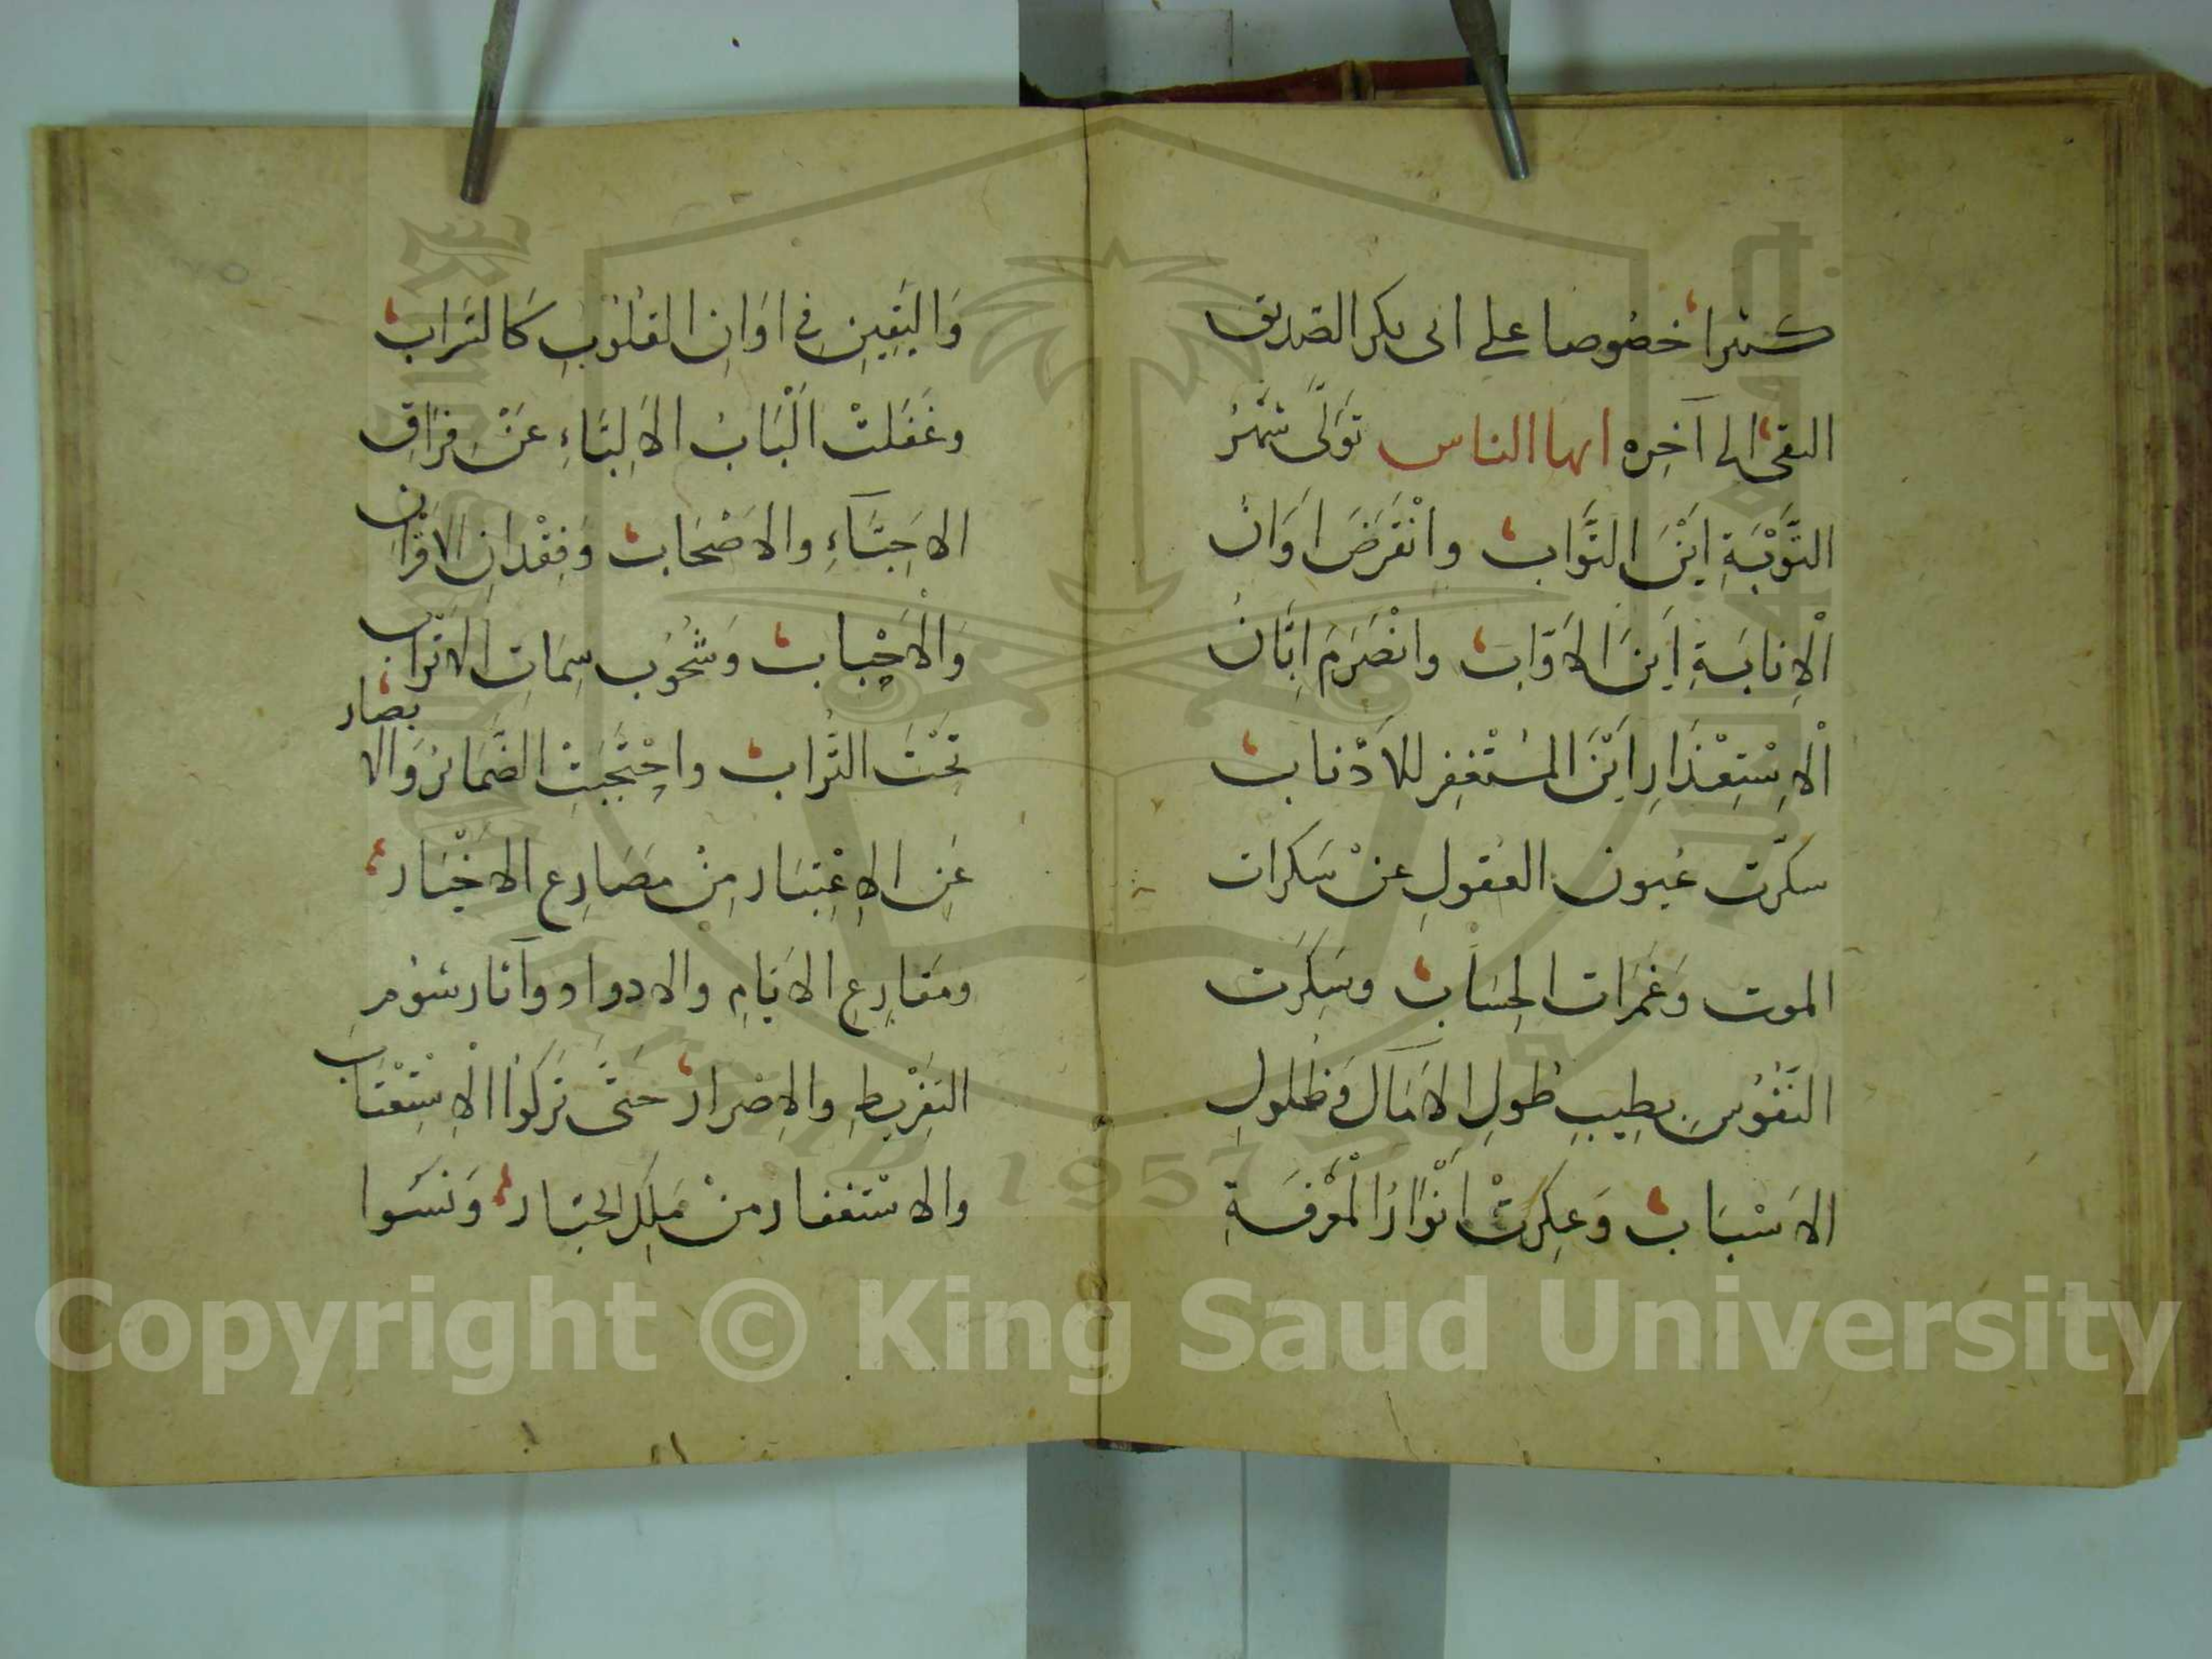 كثيرا خصُوصا على ابى بكر الصّديق
التقى الى آخِره ايها الناس تَوَلَّى شَهْرُ
التَّوْبَةِ اَيْنَ التَّواب وانْقَرَضَ اَوَانُ
الْاِنابَةِ اَيْنَ الاَوّاب وانْصَرَمَ اِبَّانُ
الْاِسْتِعْذَارِ اَيْنَ المُسْتَغفِر للاَذْناب
سكّرت عُيون العُقولِ عنْ سَكرات
الموت وَغَمَرات الحِسَاب وسَكِرَت
النُّفُوُسِ بطِيبِ طُولِ الاَمَآل وَظُلولِ
الاَسْبَاب وَعكِرَتْ اَنْوَارُ الْمَعْرِفَةِ
وَاليَقِينِ فى اوَانِ القلُوُبِ كَالتَراب
وغَفَلَتْ اَلْبَابُ الاَلِبَّاءِ عَنْ فِرَاقِ
الاَحِبَّآءِ والاَصْحَاب وَفِقْدَانِ الاَقْرَانِ
وَالْاَحْبَاب وَشُحُوُب سِمَاتِ الاَتْرَاب
تَحْتَ التُّراب واحْتَجَبَتِ الضَّمَائرُ وَالابصَار
عَنِ الاِعْتِبَار مِنْ مَصَارِع الاَخْيَار
ومَقَارِعِ الاَيَّامِ والادوار وآثار شؤمِ
التَفْرِيطِ والاِصْرار حَتَّى تَرَكُوُا الْاِسْتِعْتَاب
والاسْتغفار مِنْ مَلِكِ الجبَّار وَنَسَوا
Copyright © King Saud University
1957